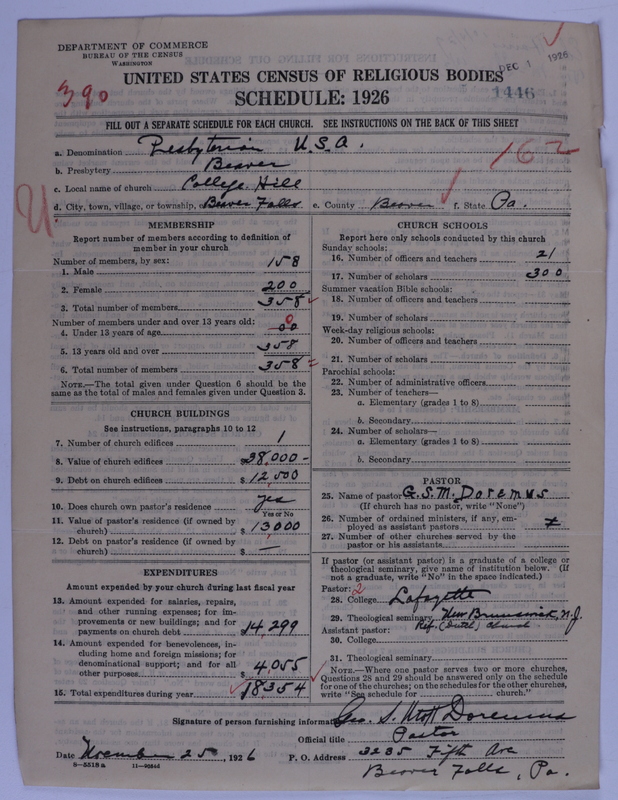 DEPARTMENT OF COMMERCE
BUREAU OF THE CENSUS
WASHINGTON
DEC 1 1926
390
UNITED STATES CENSUS OF RELIGIOUS BODIES
1446
SCHEDULE: 1926
FILL OUT A SEPARATE SCHEDULE FOR EACH CHURCH. SEE INSTRUCTIONS ON THE BACK OF THIS SHEET
a. Denomination Presbyterian U.S.A.
162
b. Presbytery Beaver
c. Local name of church College Hill
d. City, town, village, or township, Beaver Falls e. County Beaver f. State Pa.
MEMBERSHIP
Report number of members according to definition of
member in your church
Number of members, by sex:
1. Male 158
2. Female 200
3. Total number of members 358
Number of members under and over 13 years old: 0
4. Under 13 years of age 00
5. 13 years old and over 358
6. Total number of members 358
NOTE.—The total given under Question 6 should be the
same as the total of males and females given under Question 3.
CHURCH BUILDINGS
See instructions, paragraphs 10 to 12
7. Number of church edifices 1
8. Value of church edifices 38,000-
9. Debt on church edifices $ 12,500
10. Does church own pastor's residence yes
Yes or No
11. Value of pastor's residence (if owned by
church) $ 13000
12. Debt on pastor's residence (if owned by
church) $ —
EXPENDITURES
Amount expended by your church during last fiscal year
13. Amount expended for salaries, repairs,
and other running expenses; for im-
provements or new buildings; and for
payments on church debt 14,299
14. Amount expended for benevolences, in-
cluding home and foreign missions; for
denominational support; and for all
other purposes $ 4,055
15. Total expenditures during year 18354
CHURCH SCHOOLS
Report here only schools conducted by this church
Sunday schools:
16. Number of officers and teachers 21
17. Number of scholars 300
Summer vacation Bible schools:
18. Number of officers and teachers
19. Number of scholars
Week-day religious schools:
20. Number of officers and teachers
21. Number of scholars
Parochial schools:
22. Number of administrative officers
23. Number of teachers—
a. Elementary (grades 1 to 8)
b. Secondary
24. Number of scholars—
a. Elementary (grades 1 to 8)
b. Secondary
PASTOR
25. Name of pastor G.S.M. Doremus
(If church has no pastor, write "None")
26. Number of ordained ministers, if any, em-
ployed as assistant pastors
27. Number of other churches served by the
pastor or his assistants
If pastor (or assistant pastor) is a graduate of a college or
theological seminary, give name of institution below. (If
not a graduate, write "No" in the space indicated.)
Pastor: 2
28. College Lafayette
29. Theological seminary New Brunswick, N.J.
Assistant pastor: Ref. (Dutch) Church
30. College
31. Theological seminary
NOTE.—Where one pastor serves two or more churches,
Questions 28 and 29 should be answered only on the schedule
for one of the churches; on the schedules for the other churches,
write "See schedule for church."
Signature of person furnishing information Geo. S. Mott Doremus
Official title Pastor
Date November 25, 1926 P. O. Address 3235 Fifth Ave
8-5518a
Beaver Falls, Pa.